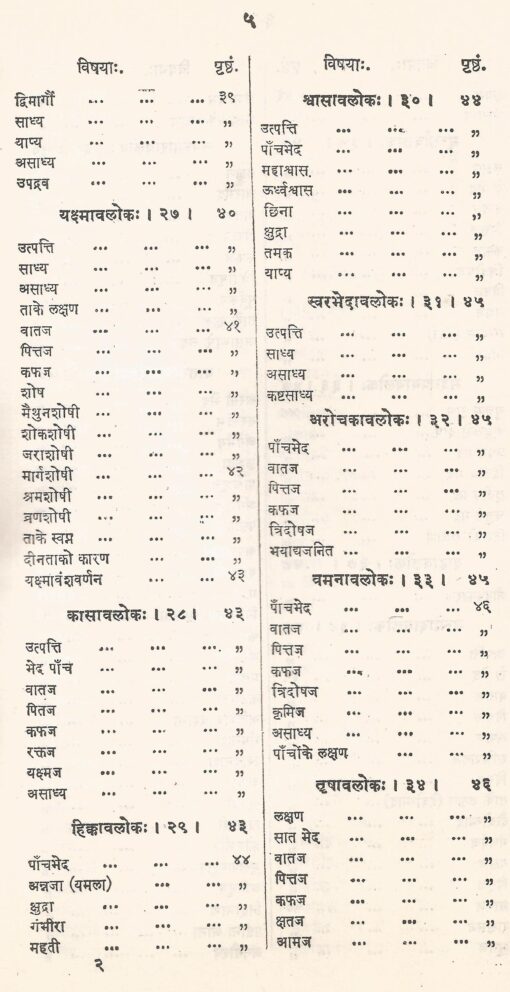 ५
विषयाः. पृष्ठं.
द्विमार्गौ ... ... ... ३९
साध्य ... ... ... ,,
याप्य ... ... ... ,,
असाध्य ... ... ... ,,
उपद्रव ... ... ... ,,
यक्ष्मावलोकः । २७ । ४०
उत्पत्ति ... ... ... ,,
साध्य ... ... ... ,,
असाध्य ... ... ... ,,
ताके लक्षण ... ... ... ,,
वातज ... ... ... ४१
पित्तज ... ... ... ,,
कफज ... ... ... ,,
शोष ... ... ... ,,
मैथुनशोषी ... ... ... ,,
शोकशोषी ... ... ... ,,
जराशोषी ... ... ... ,,
मार्गशोषी ... ... ... ४२
श्रमशोषी ... ... ... ,,
व्रणशोषी ... ... ... ,,
ताके स्वप्न ... ... ... ,,
दीनताको कारण ... ... ,,
यक्ष्मावंशवर्णन ... ... ४३
कासावलोकः । २८ । ४३
उत्पत्ति ... ... ... ,,
भेद पाँच ... ... ... ,,
वातज ... ... ... ,,
पितज ... ... ... ,,
कफज ... ... ... ,,
रक्तज ... ... ... ,,
यक्ष्मज ... ... ... ,,
असाध्य ... ... ... ,,
हिक्कावलोकः । २९ । ४३
पाँचभेद ... ... ... ४४
अन्नजा (यमला) ... ... ,,
क्षुद्रा ... ... ... ,,
गंभीरा ... ... ... ,,
महती ... ... ... ,,
२
विषयाः. पृष्ठं.
श्वासावलोकः । ३० । ४४
उत्पत्ति ... ... ... ,,
पाँचभेद ... ... ... ,,
महाश्वास ... ... ... ,,
ऊर्ध्वश्वास ... ... ... ,,
छिना ... ... ... ,,
क्षुद्रा ... ... ... ,,
तमक ... ... ... ,,
याप्य ... ... ... ,,
स्वरभेदावलोकः । ३१ । ४५
उत्पत्ति ... ... ... ,,
साध्य ... ... ... ,,
असाध्य ... ... ... ,,
कष्टसाध्य ... ... ... ,,
अरोचकावलोकः । ३२ । ४५
पाँचभेद ... ... ... ,,
वातज ... ... ... ,,
पित्तज ... ... ... ,,
कफज ... ... ... ,,
त्रिदोषज ... ... ... ,,
भयाद्यजनित ... ... ... ,,
वमनावलोकः । ३३ । ४५
पाँचभेद ... ... ... ४६
वातज ... ... ... ,,
पित्तज ... ... ... ,,
कफज ... ... ... ,,
त्रिदोषज ... ... ... ,,
कृमिज ... ... ... ,,
असाध्य ... ... ... ,,
पाँचोंके लक्षण ... ... ,,
तृषावलोकः । ३४ । ४६
लक्षण ... ... ... ,,
सात भेद ... ... ... ,,
वातज ... ... ... ,,
पित्तज ... ... ... ,,
कफज ... ... ... ,,
क्षतज ... ... ... ,,
आमज ... ... ... ,,